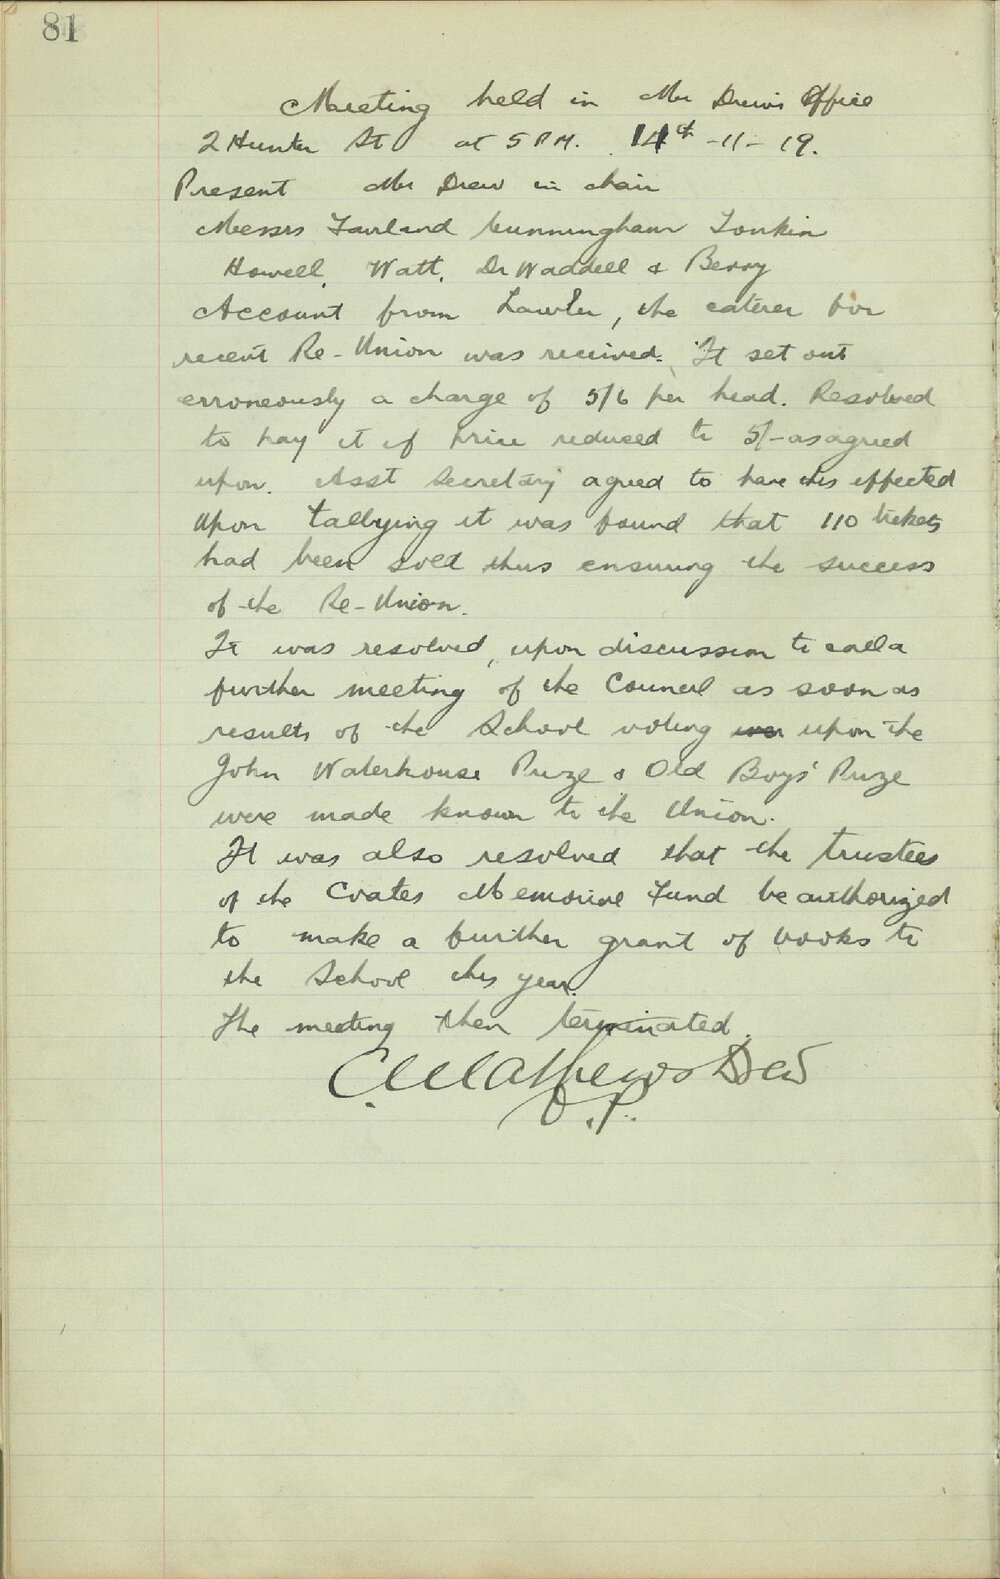 81
Meeting held in Mr Drew's Office
2 Hunter St at 5 P.M. 14th -11- 19.
Present Mr Drew in chair
Messrs Fairland Cunningham Tonkin
Howell, Watt, Dr Waddell & Berry
Account from Lawler, the caterer for
recent Re-Union was received. It set out
erroneously a charge of 5/6 per head. Resolved
to pay it if price reduced to 5/- as agreed
upon. Asst Secretary agreed to have this effected
Upon tallying it was found that 110 tickets
had been sold thus ensuring the success
of the Re-Union.
It was resolved, upon discussion to call a
further meeting of the Council as soon as
results of the School voting upon the
John Waterhouse Prize & Old Boys' Prize
were made known to the Union.
It was also resolved that the trustees
of the Coates Memorial Fund be authorized
to make a further grant of books to
the School this year.
The meeting then terminated.
C. Mathews Drew
V.P.